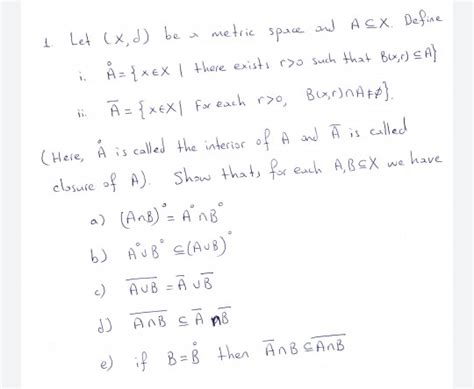 1 Let (X,d) be a metric space and A⊆X. Define
i. Å = {x∈X | there exists r>0 such that B(x,r)⊆A}
ii. A̅ = {x∈X | For each r>0, B(x,r)∩A≠∅}.
(Here, Å is called the interior of A and A̅ is called
closure of A). Show that, for each A,B⊆X we have
a) (A∩B)° = A°∩B°
b) A°∪B° ⊆ (A∪B)°
c) \overline{A∪B} = A̅ ∪ B̅
d) \overline{A∩B} ⊆ A̅ ∩ B̅
e) if B = B̊ then A̅∩B ⊆ \overline{A∩B}